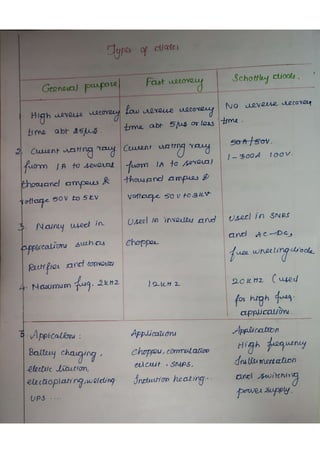 Types of diodes
General purpose | Fast recovery | Schottky diode.
1 High reverse recovery | low reverse recovery | No reverse recovery
time abt 25μs | time abt 5μs or less | time.
2. Current rating vary | Current rating vary | 50A/50V.
from 1A to several | from 1A to several | 1-300A 100V.
thousand amperes & | thousand amperes &
voltage 50V to 5kV | voltage 50V to 3kV
3. Mainly used in | Used in inverter and | Used in SMPS
application such as | chopper | and AC-DC,
Rectifier and converter | free wheeling diode
4. Maximum freq. 2kHz | 12kHz | 20kHz (used
for high freq.
application
5 Application: | Application | Application
Battery charging, | chopper, commutation | High frequency
electric traction, | circuit, SMPS, | Instrumentation
electroplating, welding | Induction heating.. | and switching
UPS .... | power supply.